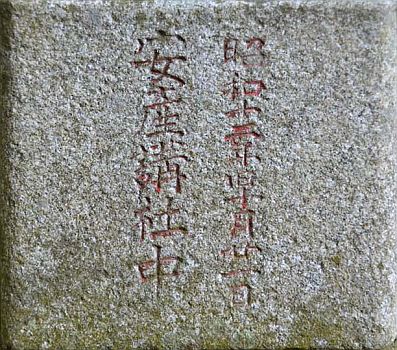 昭和十 年 月廿一日
安産講社中